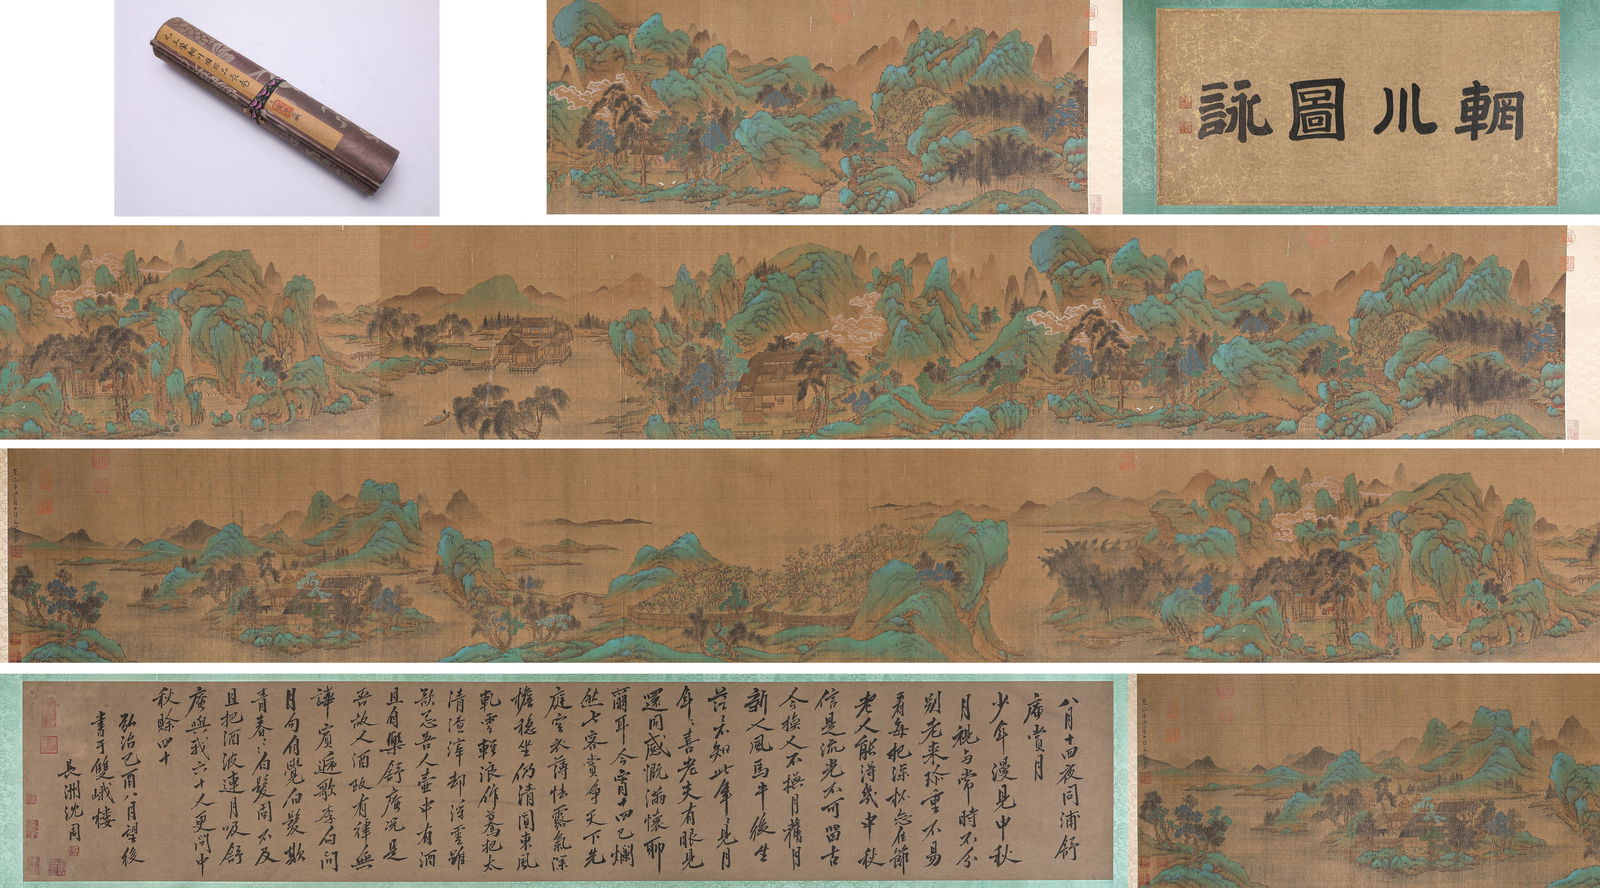 輞川圖詠
八月十四夜同浦舒
庵賞月
少年漫見中秋
月視與常時不分
別老来珎重不易
看每把深杯怨在節
老人能得幾中秋
信是流光不可留古
今換人不換月舊月
新人風馬牛後生
茫不知此年見月
年〻喜老夫有眼見
還同感慨滿懷聊
爾耳今宵十四已爛
然七客賞爭天下先
庭空衣薄怯露氣深
檐穩坐仍清閒東風
軋雲輕浪作驀把太
清渣滓却浮雲雖
欲忌吾人壷中有酒
且自樂舒庵况是
吾故人酒政有律無
譁賓遍歌李白問
月句自覺白髮欺
青春〻白髮固不及
且把酒波連月吸舒
庵與我六十人更問中
秋賒四十
弘治己酉八月望後
書于雙峨樓
長洲沈周